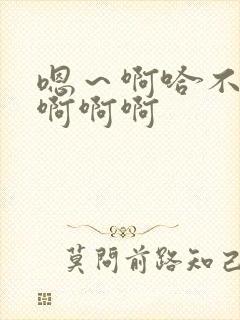 嗯～啊哈不
啊啊啊
莫問前路知己